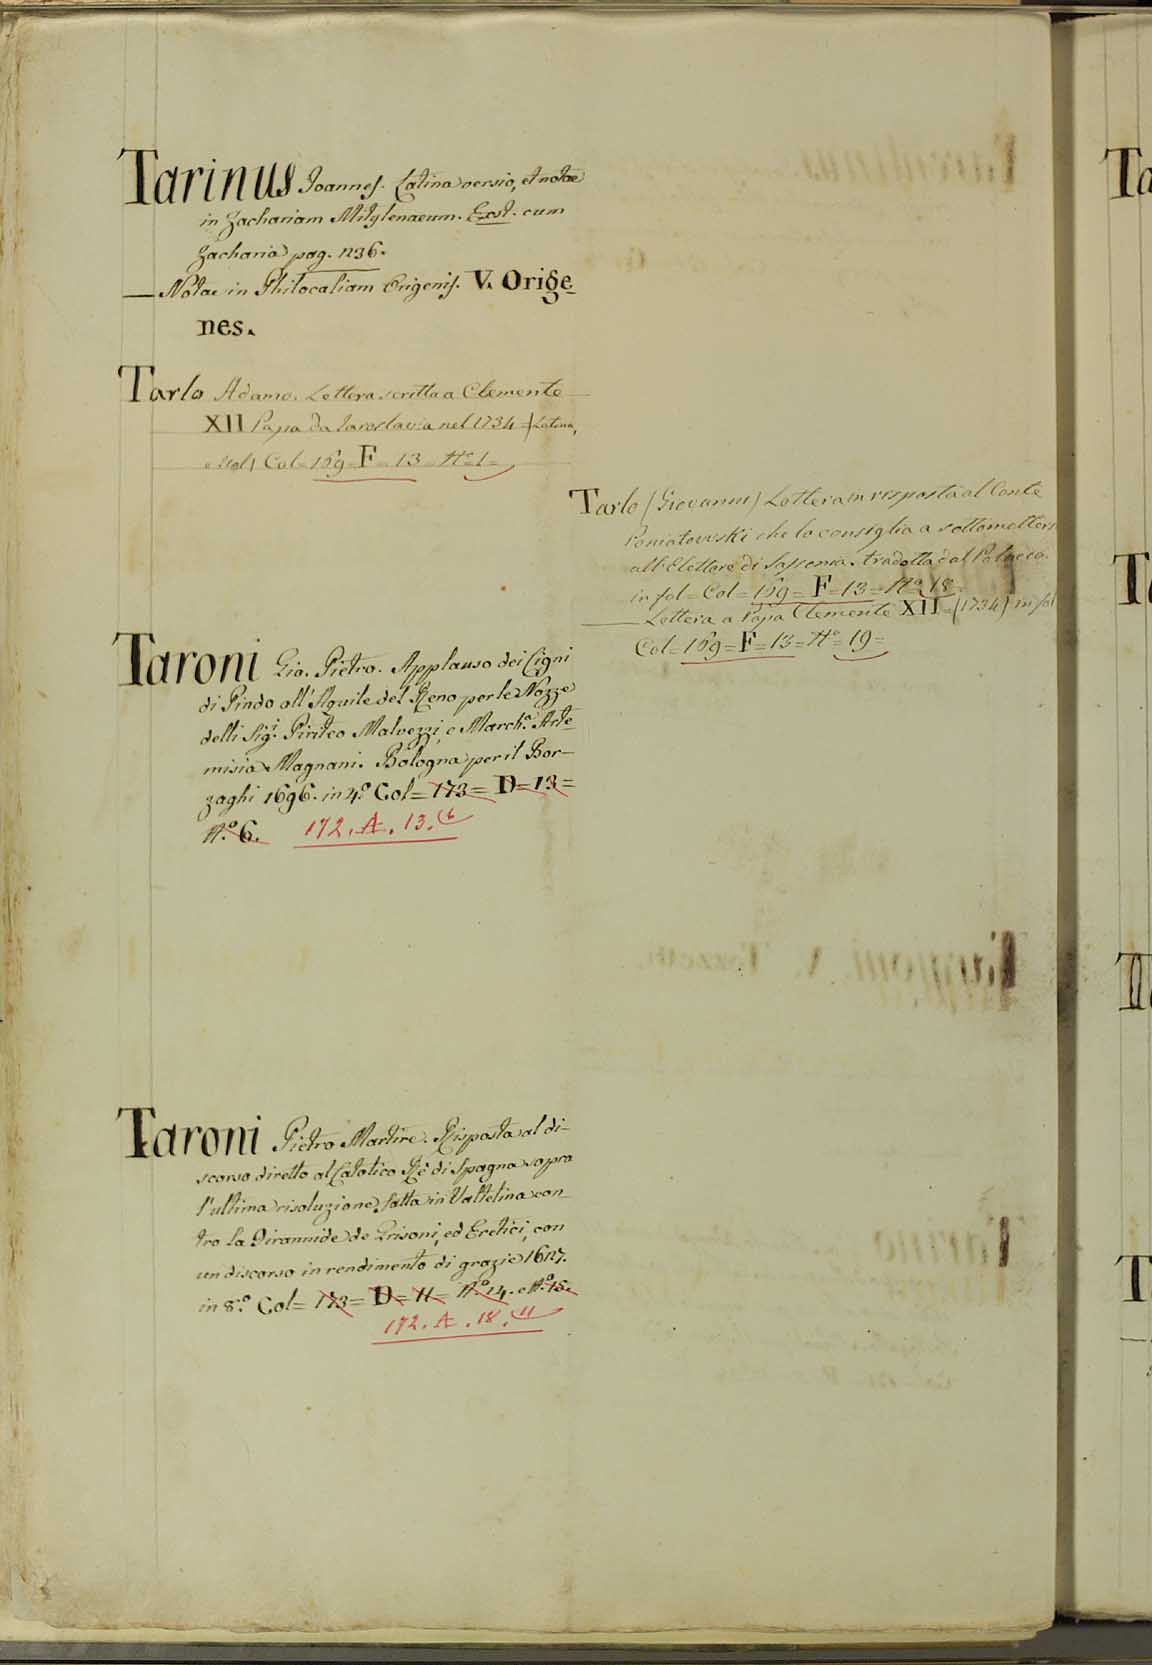 Tarinus Joannes. Latina versio, et notae
in Zachariam Mitylenaeum. Exst. cum
Zacharia pag. 1236.
— Notae in Philocaliam Origenis. V. Orige_
nes.
Tarlo Adamo. Lettera scritta a Clemente
XII Papa da Jaroslavia nel 1734 = (Latina,
Col = 169 = F = 13 = N.º 1 =
Taroni Gio. Pietro. Applauso dei Cigni
di Pindo all'Aquile del Reno per le Nozze
delli Sig.i Piriteo Malvezzi, e March.a Arte_
misia Magnani. Bologna per il Bor_
zaghi 1696. in 4.º Col = 173 = D = 13 =
N.º 6. 172. A. 13. (6
Taroni Pietro Martire. Risposta al di_
scorso diretto al Catolico Rè di Spagna sopra
l'ultima risoluzione fatta in Valtelina con_
tro la Tirannide de Grisoni, ed Eretici, con
un discorso in rendimento di grazie 1627.
in 8.º Col = 173 = D = 11 = N.º 14. e N.º 15.
172. A. 18. (11
Tarlo (Giovanni) Lettera in risposta al Conte
Poniatowski che lo consiglia a sottomettersi
all'Elettore di Sassonia. tradotta dal Polacco.
in fol = Col = 169 = F = 13 = N.º 18 =
— Lettera a Papa Clemente XII = (1734) in fol
Col = 169 = F = 13 = N.º = 19 =
Ta
T
T
T